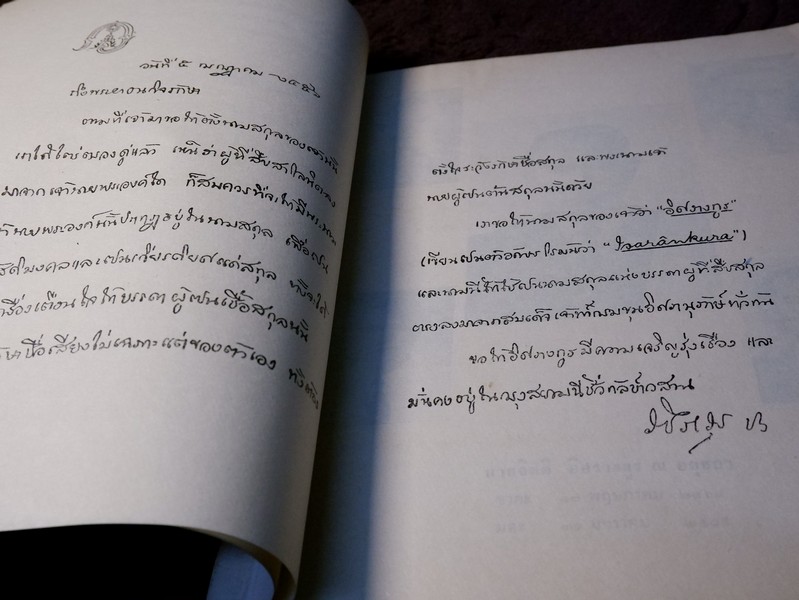 วันที่ ๕ กรกฎาคม ๒๔๕๖
ถึงพระยา
ตามที่เจ้ามาขอให้ตั้งนามสกุลของ
เราได้ไตร่ตรองดูแล้ว เห็นว่าผู้ที่สืบสาโลหิต
มาจากเจ้านายพระองค์ใด ก็สมควรที่จะให้มีพระนาม
เจ้านายพระองค์นั้นปรากฏอยู่ในนามสกุล เพื่อเป็น
มงคลและเป็นเกียรติยศแก่สกุล ทั้งจะได้
เครื่องเตือนใจให้บรรดาผู้เป็นเชื้อสกุลนั้น
รักษาชื่อเสียงไม่เฉพาะแต่ของตัวเอง ทั้งต้อง
ตั้งใจระวังรักษาชื่อสกุล และพระนามเจ้า
นายผู้เป็นต้นสกุลนั้นด้วย
เราขอให้นามสกุลของเจ้าว่า "อิศรางกูร"
(เขียนเป็นตัวอักษรโรมันว่า "Isarânkura")
และนามนี้ให้ใช้เป็นนามสกุลแห่งบรรดาผู้ที่สืบสกุล
ตรงลงมาจากสมเด็จเจ้าฟ้ากรมขุนอิศรานุรักษ์ทั่วกัน
ขอให้อิศรางกูรมีความเจริญรุ่งเรือง และ
มั่นคงอยู่ในกรุงสยามนี้ชั่วกัลปาวสาน